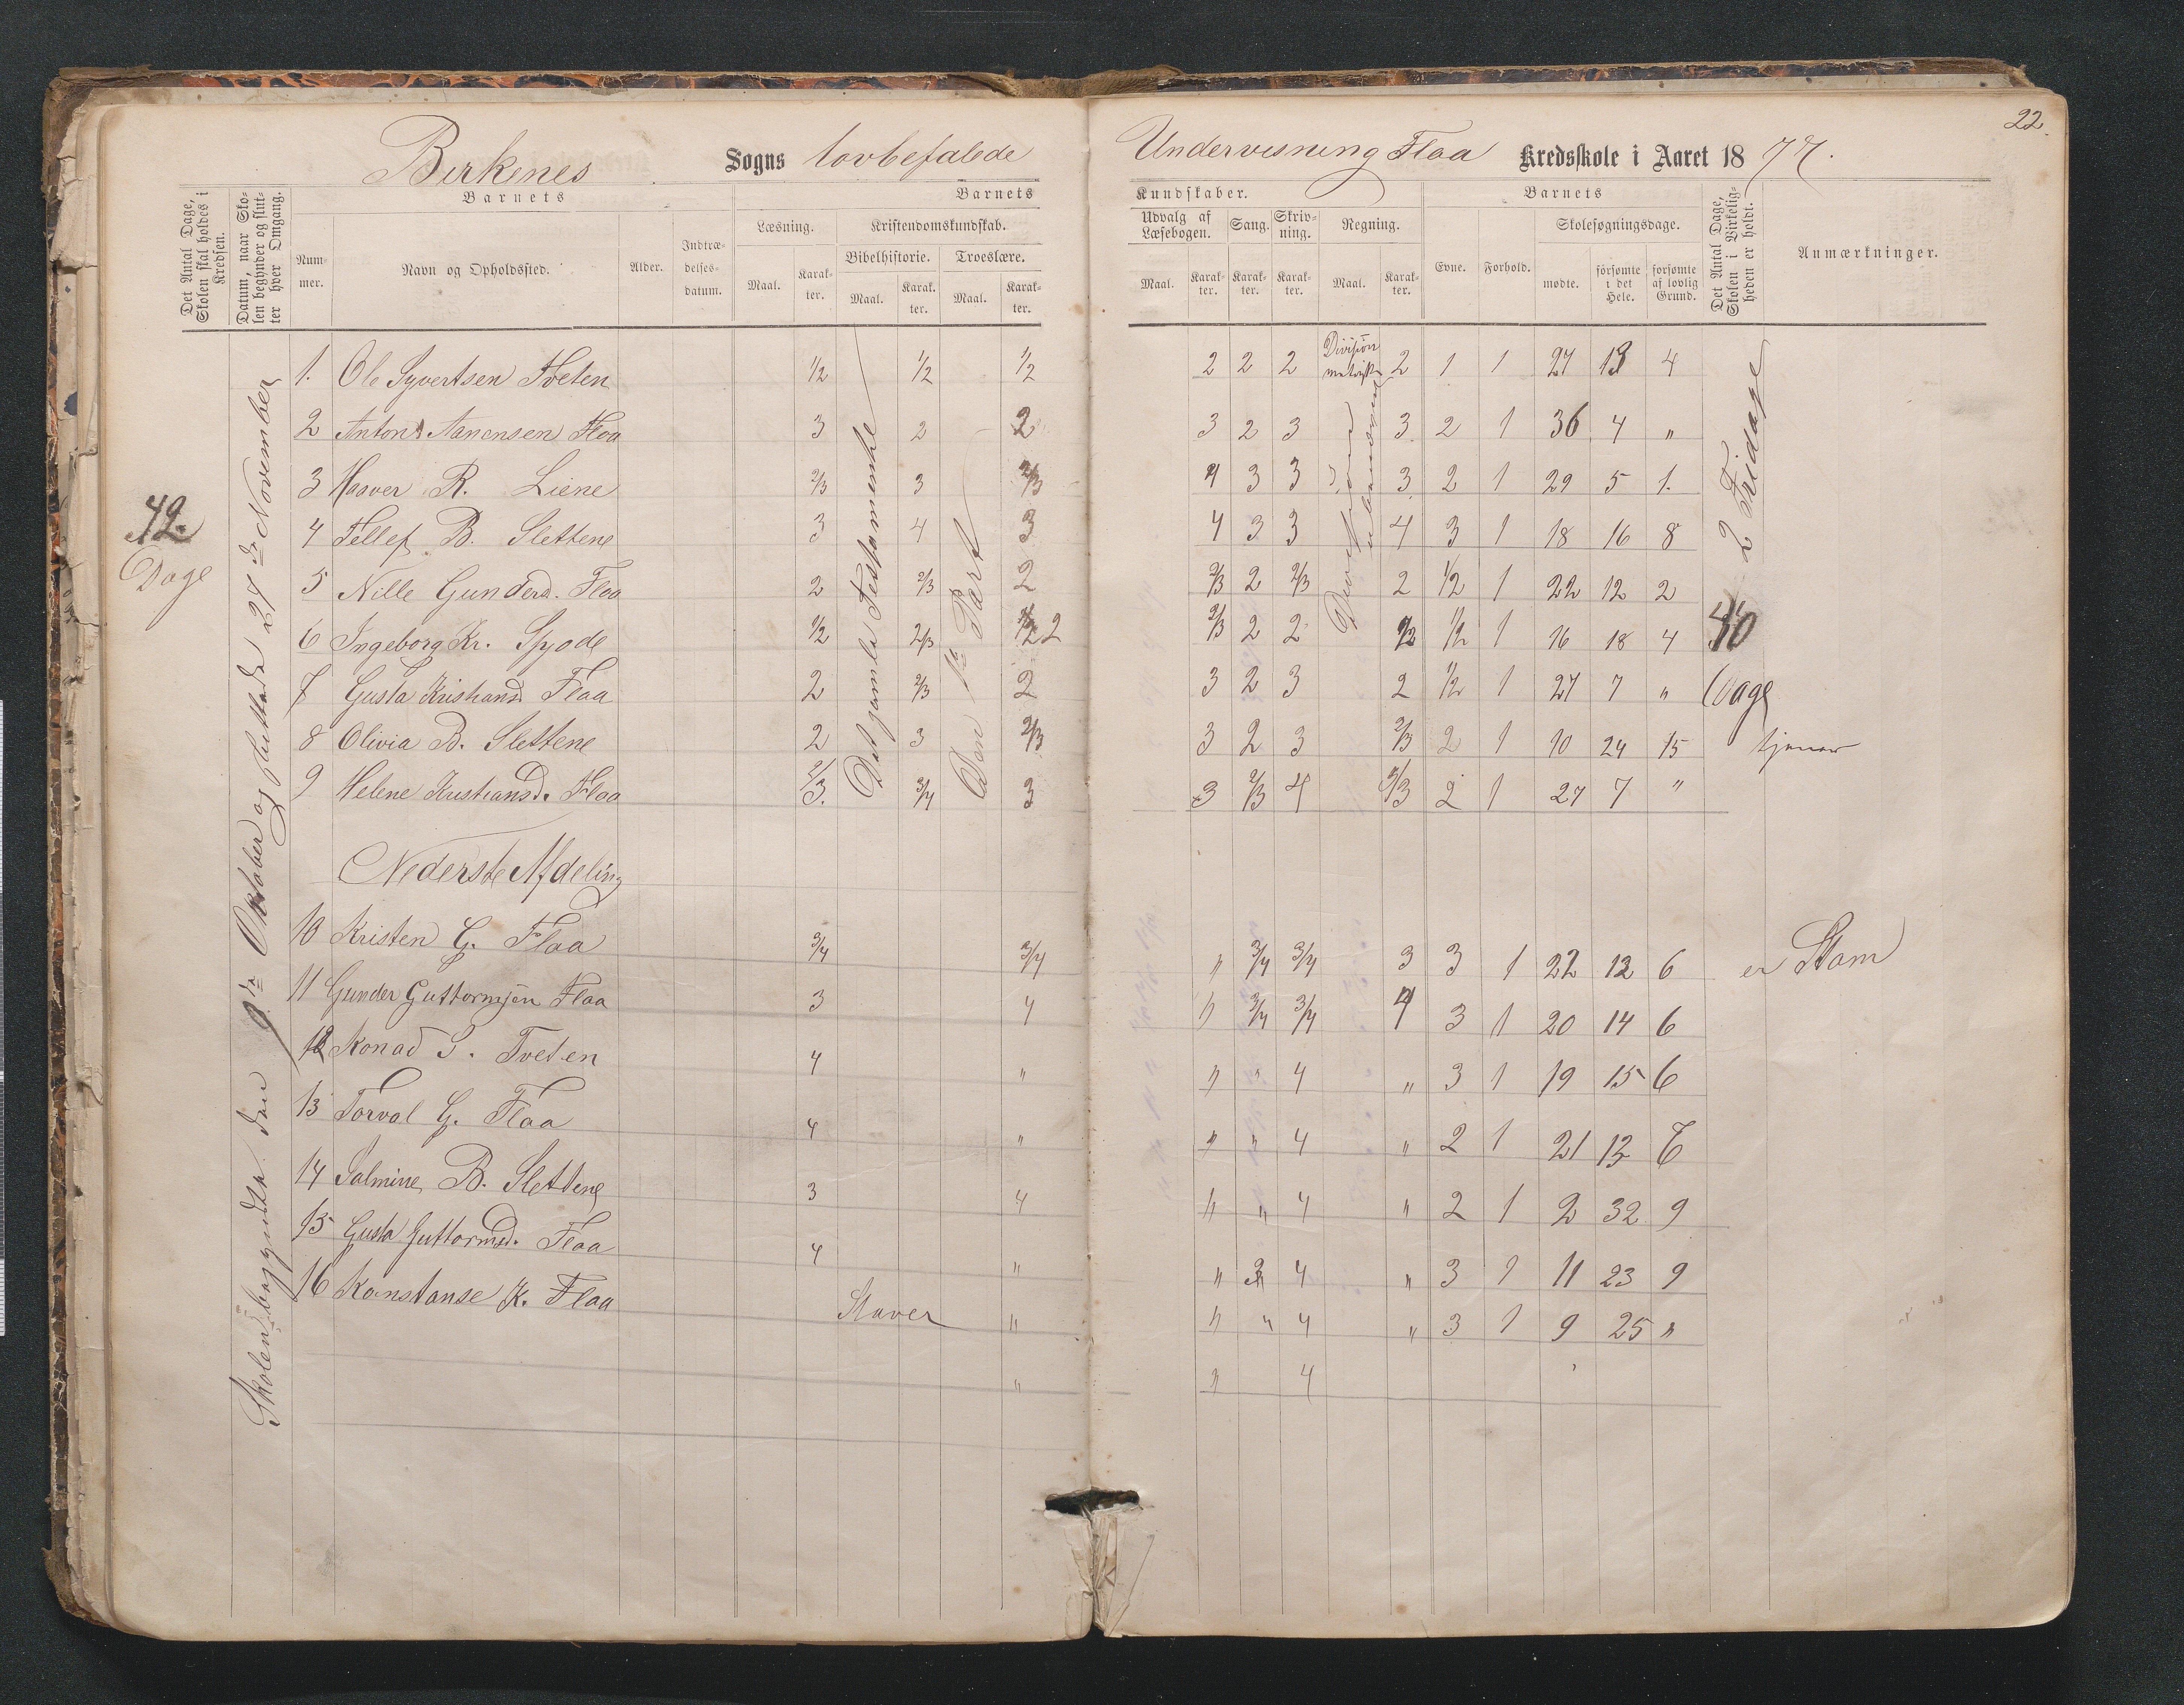 22.
Birkenes Sogns lovbefalede Undervisning Flaa Kredsskole i Aaret 1877.
Det Antal Dage, Skolen skal holdes i Kredsen.
Datum, naar Skolen begynder og slutter hver Omgang.
Barnets
Nummer.
Navn og Opholdssted.
Alder.
Indtrædelsesdatum.
Barnets Kundskaber.
Læsning.
Maal.
Karakter.
Kristendomskundskab.
Bibelhistorie.
Maal.
Karakter.
Troeslære.
Maal.
Karakter.
Udvalg af Læsebogen.
Maal.
Karakter.
Sang.
Karakter.
Skrivning.
Karakter.
Regning.
Maal.
Karakter.
Barnets
Evne.
Forhold.
Skolesøgningsdage.
mødte.
forsømte i det Hele.
forsømte af lovlig Grund.
Det Antal Dage, Skolen i Virkeligheden er holdt.
Anmærkninger.
42 Dage
Skolen begyndte den 9de Oktober og sluttede 27de November
Det gamle Testamente
Den 1te Part
2 Fridage
40 Dage
1. Ole Syvertsen Tveten 1/2 1/2 1/2 2 2 2 Division 2 1 1 27 13 4
2 Anton Aanensen Flaa 3 2 2 3 2 3 3 2 1 36 4 "
3 Haaver R. Liene 2/3 3 2/3 4 3 3 3 2 1 29 5 1.
4 Tellef B. Slettene 3 4 3 4 3 3 4 3 1 18 16 8
5 Nille Gunderd. Flaa 2 2/3 2 2/3 2 2/3 2 1/2 1 22 12 2
6 Ingeborg Kr. Spjode 1/2 2/3 2 2/3 2 2 1/2 1/2 1 16 18 4
7 Gusta Kristiansd. Flaa 2 2/3 2 3 2 3 2 1/2 1 27 7 "
8 Olivia B. Slettene 2 3 2/3 3 2 3 2/3 2 1 10 24 15 tjener
9 Helene Kristiansd. Flaa 2/3. 3/4 3 3 2/3 4 2/3 2 1 27 7 "
Nederste Afdeling
10 Kristen G. Flaa 3/4 3/4 " 3/4 3/4 3 3 1 22 12 6 er Stam
11 Gunder Guttormsen Flaa 3 4 " 3/4 3/4 4 3 1 20 14 6
12 Konad S. Tveten 4 " " " 4 " 3 1 19 15 6
13 Torval G. Flaa 4 " " " 4 " 2 1 21 13 7
14 Salmine B. Slettene 3 4 " " 4 " 2 1 2 32 9
15 Gusta Guttormsd. Flaa 4 " " 3 4 " 3 1 11 23 9
16 Konstanse K. Flaa Staver " " " 4 " 3 1 9 25 "
" " 4